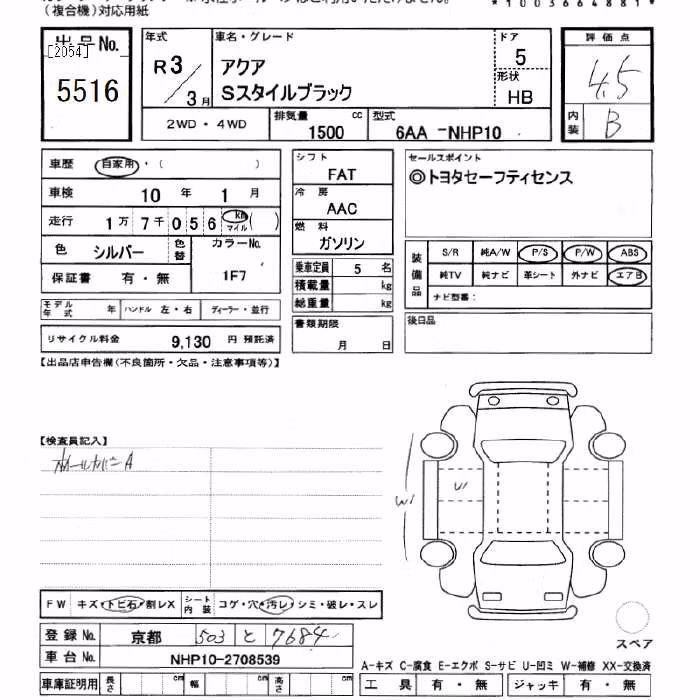 (複合機)対応用紙
*1003664881*
出品No.
[2054]
5516
年式
R3/3月
車名・グレード
アクア
Sスタイルブラック
ドア
5
形状
HB
評価点
4.5
内装
B
2WD・4WD
排気量
1500 cc
型式
6AA -NHP10
車歴 自家用・( )
車検 10年 1月
走行 1万7千056 km マイル ( )
色 シルバー 色替
カラーNo.
1F7
保証書 有・無
モデル年式 年
ハンドル 左・右
ディーラー・並行
リサイクル料金 9,130 円 預託済
シフト
FAT
冷房
AAC
燃料
ガソリン
乗車定員 5 名
積載量 kg
総重量 kg
書類期限
月 日
セールスポイント
◎トヨタセーフティセンス
装備品
S/R 純A/W P/S P/W ABS
純TV 純ナビ 革シート 外ナビ エアB
ナビ型番:
後日品
【出品店申告欄(不良箇所・欠品・注意事項等)】
【検査員記入】
ホールカバーA
W
W
FW キズ・トビ石・割レX
シート内装 コゲ・穴・汚レ・シミ・破レ・スレ
登録No. 京都 503 と 7684
車台No. NHP10-2708539
車庫証明用 長さ cm 幅 cm 高さ cm
スペア
A-キズ C-腐食 E-エクボ S-サビ U-凹ミ W-補修 XX-交換済
工具 有・無 ジャッキ 有・無